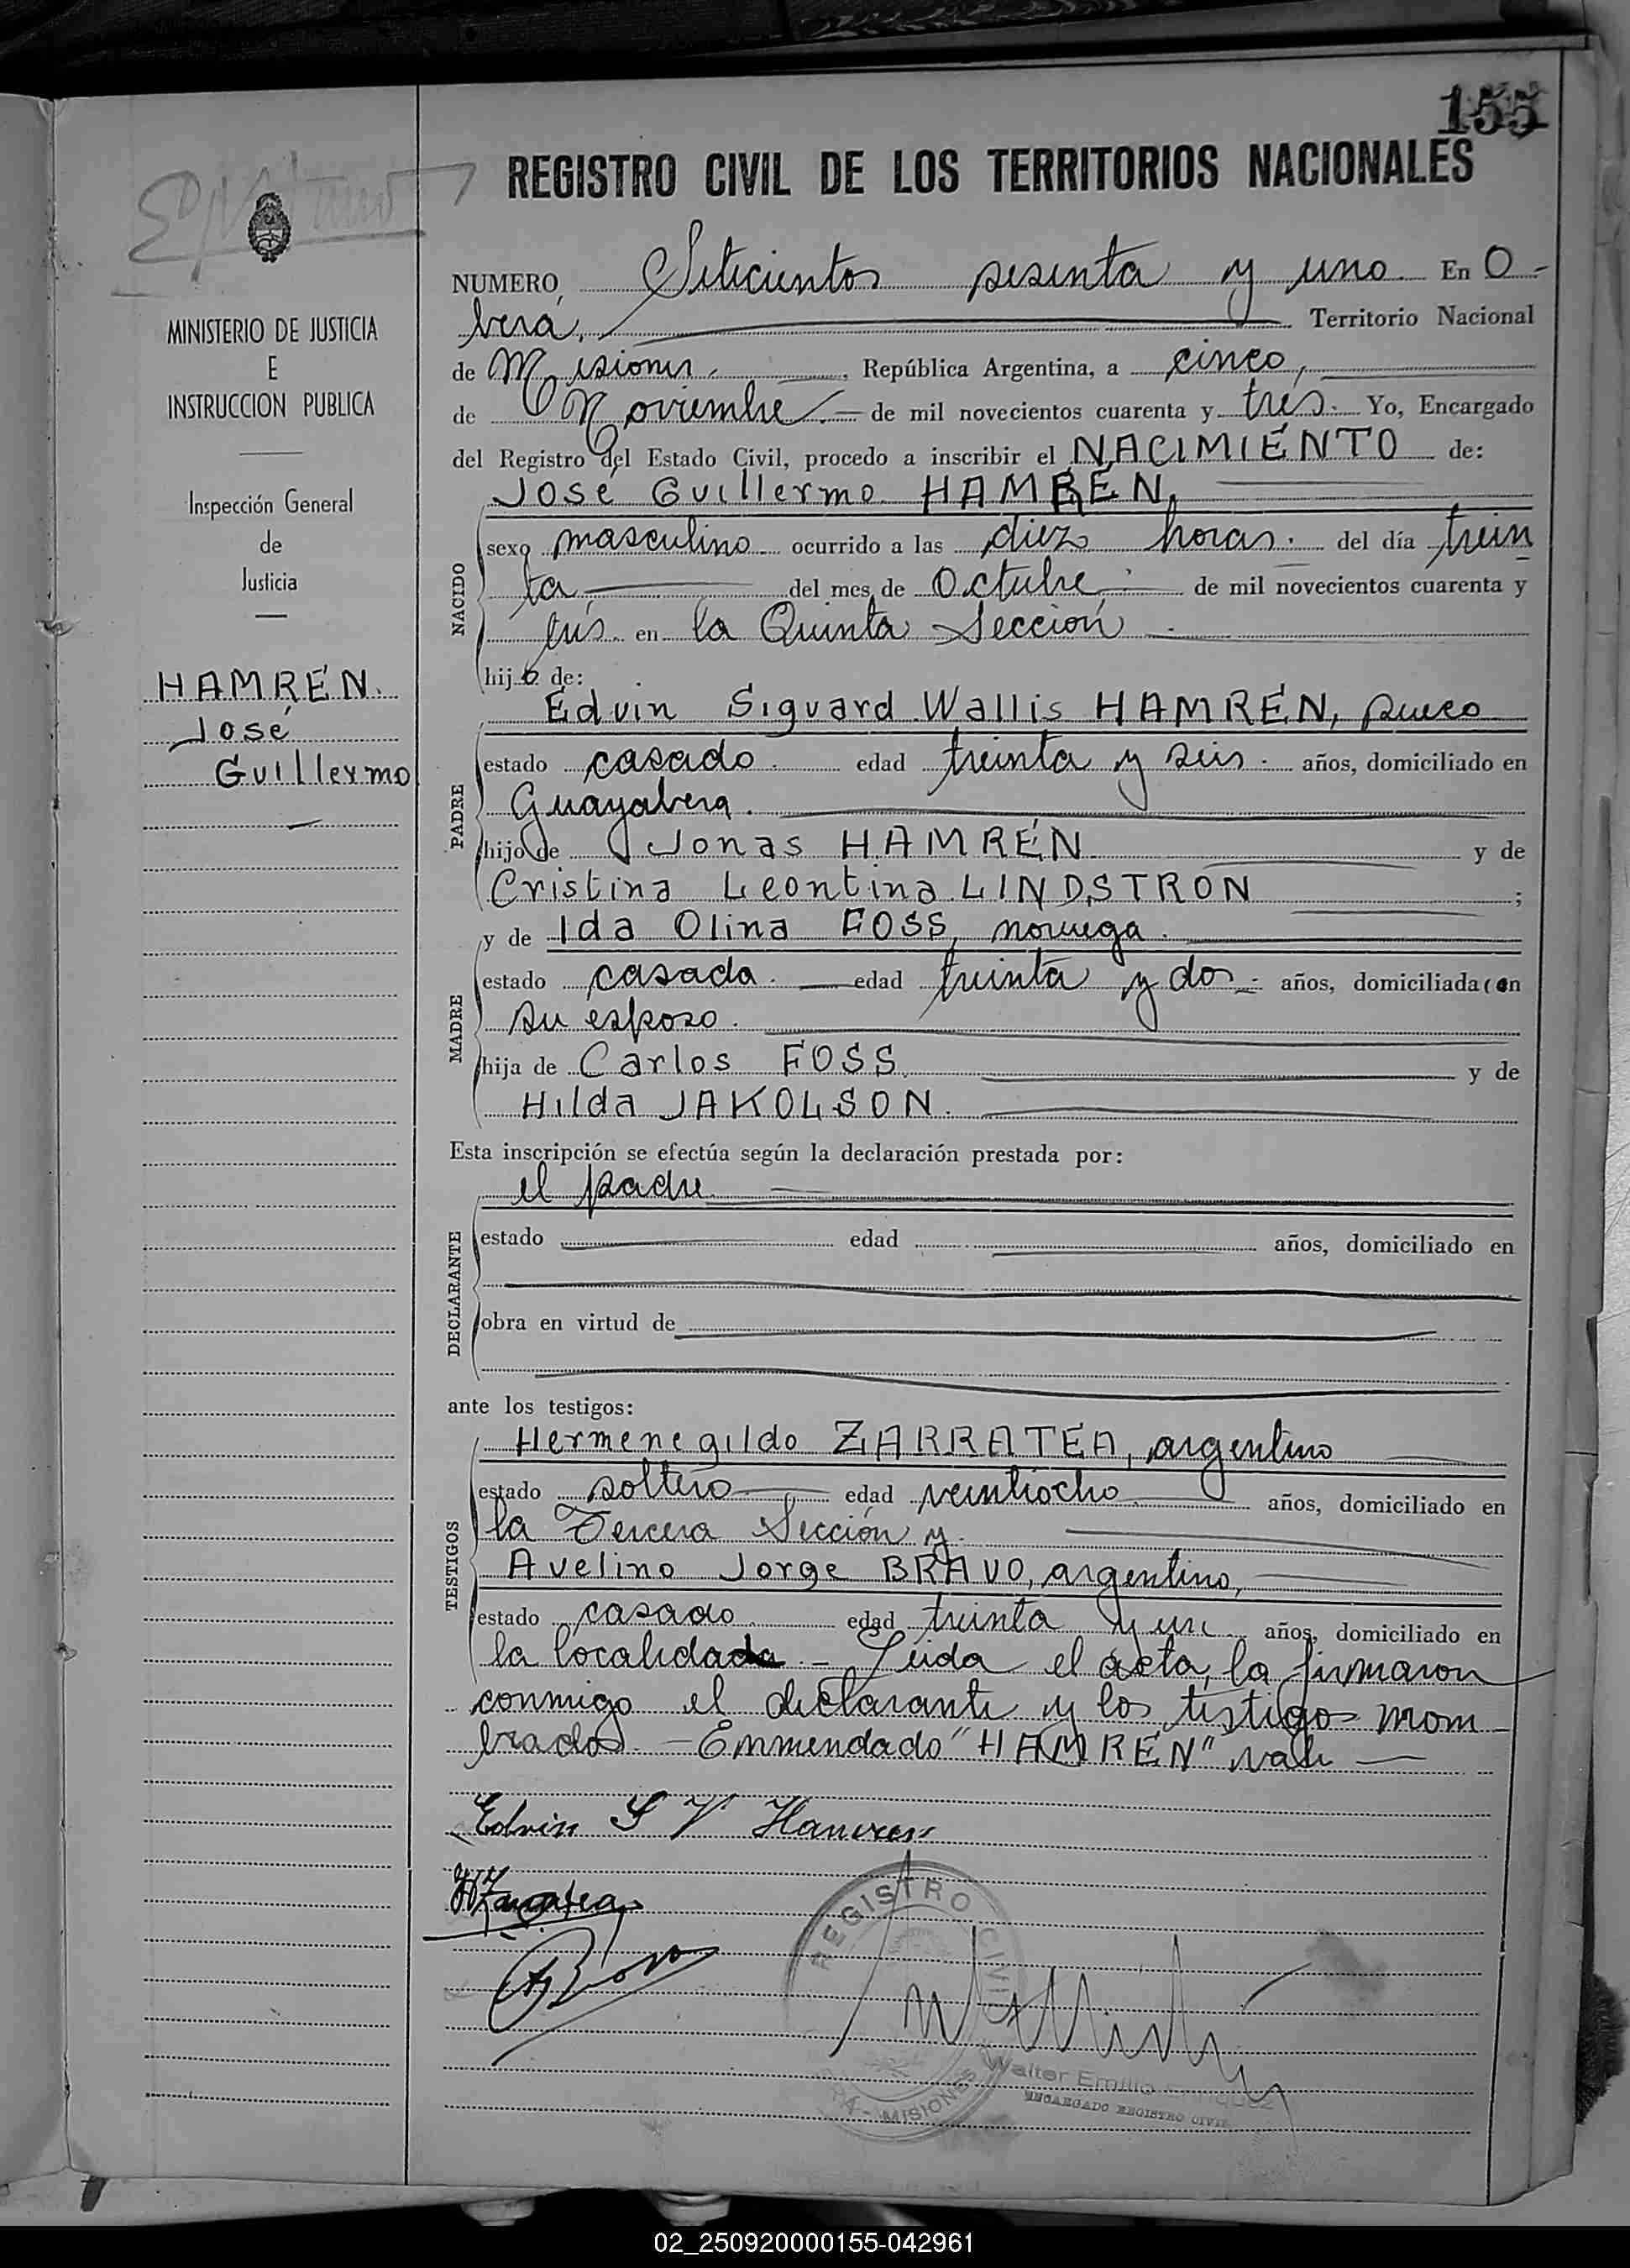 155
REGISTRO CIVIL DE LOS TERRITORIOS NACIONALES
NUMERO Setecientos sesenta y uno. En O-
berá, Territorio Nacional
de Misiones, República Argentina, a cinco,
de Noviembre de mil novecientos cuarenta y tres. Yo, Encargado
del Registro del Estado Civil, procedo a inscribir el NACIMIENTO de:
José Guillermo HAMRÉN,
NACIDO
sexo masculino ocurrido a las diez horas. del día trein
ta, del mes de Octubre de mil novecientos cuarenta y
tres. en la Quinta Sección
hijo de:
Edvin Siguard Wallis HAMRÉN, sueco
PADRE
estado casado. edad treinta y seis. años, domiciliado en
Guayabera.
hijo de Jonas HAMRÉN y de
Cristina Leontina LINDSTRON ;
y de Ida Olina FOSS, noruega.
MADRE
estado casada. edad treinta y dos años, domiciliada con
su esposo.
hija de Carlos FOSS y de
Hilda JAKOLSON.
Esta inscripción se efectúa según la declaración prestada por:
el padre
DECLARANTE
estado edad años, domiciliado en
obra en virtud de
ante los testigos:
Hermenegildo ZARRATEA, argentino
TESTIGOS
estado soltero edad veintiocho años, domiciliado en
la Tercera Sección y
Avelino Jorge BRAVO, argentino,
estado casado edad treinta y un años, domiciliado en
la localidad. - Leida el acta, la firmaron
conmigo el declarante y los testigos nom
brados. - Enmendado "HAMRÉN" vale
Edvin S V Hamren
HZarratea
ABravo
REGISTRO CIVIL
MISIONES
Walter Emilio
ENCARGADO REGISTRO CIVIL
MINISTERIO DE JUSTICIA
E
INSTRUCCION PUBLICA
Inspección General
de
Justicia
HAMRÉN.
José
Guillermo
02_250920000155-042961